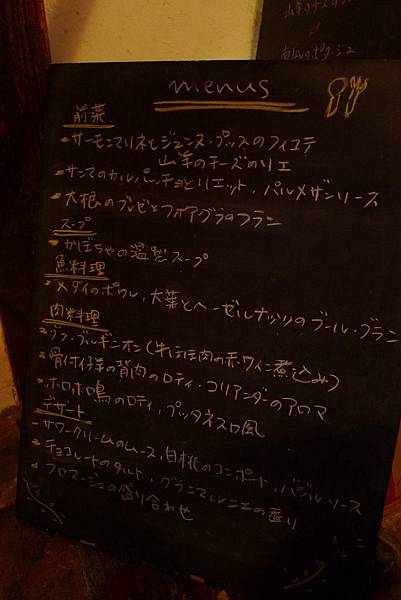 山羊のチーズの
かぼちゃのポタージュ
menus
前菜
・サーモンマリネとジェンヌ・プッスのフィユテ
山羊のチーズのリエ
・サンマのカルパッチョとリエット、パルメザンソース
・大根のブレゼとフォアグラのフラン
スープ
・かぼちゃの温製スープ
魚料理
・メダイのポワレ、大葉とヘーゼルナッツのブール・ブラン
肉料理
・ブフ・ブルギニオン(牛ほほ肉の赤ワイン煮込み)
・骨付仔羊の背肉のロティ・コリアンダーのアロマ
・ホロホロ鳥のロティ、プッタネスカ風
デザート
・サワークリームのムース、白桃のコンポート、バジルソース
・チョコレートのタルト、グランマルニエの香り
・フロマージュの盛り合わせ